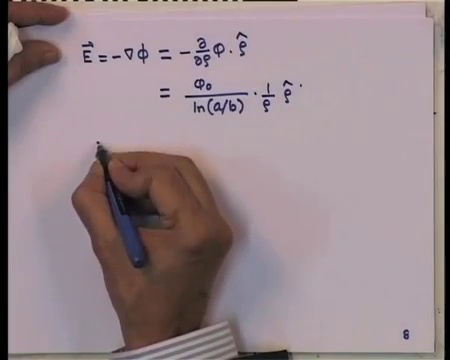 E⃗ = -∇ϕ = - ∂/∂ρ φ · ρ̂
= φ₀ / ln(a/b) · 1/ρ ρ̂
8